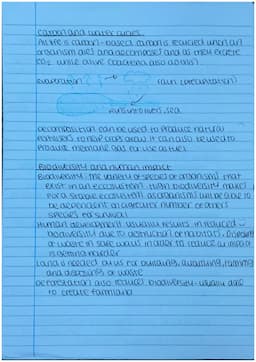 Carbon and water cycles
All life is carbon-based. Carbon is recycled when an
organism dies and decomposes and as they excrete
CO2 while alive
evaporation rain (precipitation)
runs into rivers, sea
decomposition can be used to produce natural
fertilisers to help crops grow. It can also be used to
produce methane gas for use as fuel
Biodiversity and human impact
Biodiversity: the variety of species of organisms that
exist in an ecosystem. High biodiversity makes
for a stable ecosystem as organisms will be able to
be dependent on a greater number of others
species for survival
Human development usually results in reduced
biodiversity due to destruction of habitats.
of waste in safe ways in order to reduce
is getting harder
Land is needed by us for building, quarrying, farming
and disposing of waste
Deforestation also reduces biodiversity - usually done
to create farmland